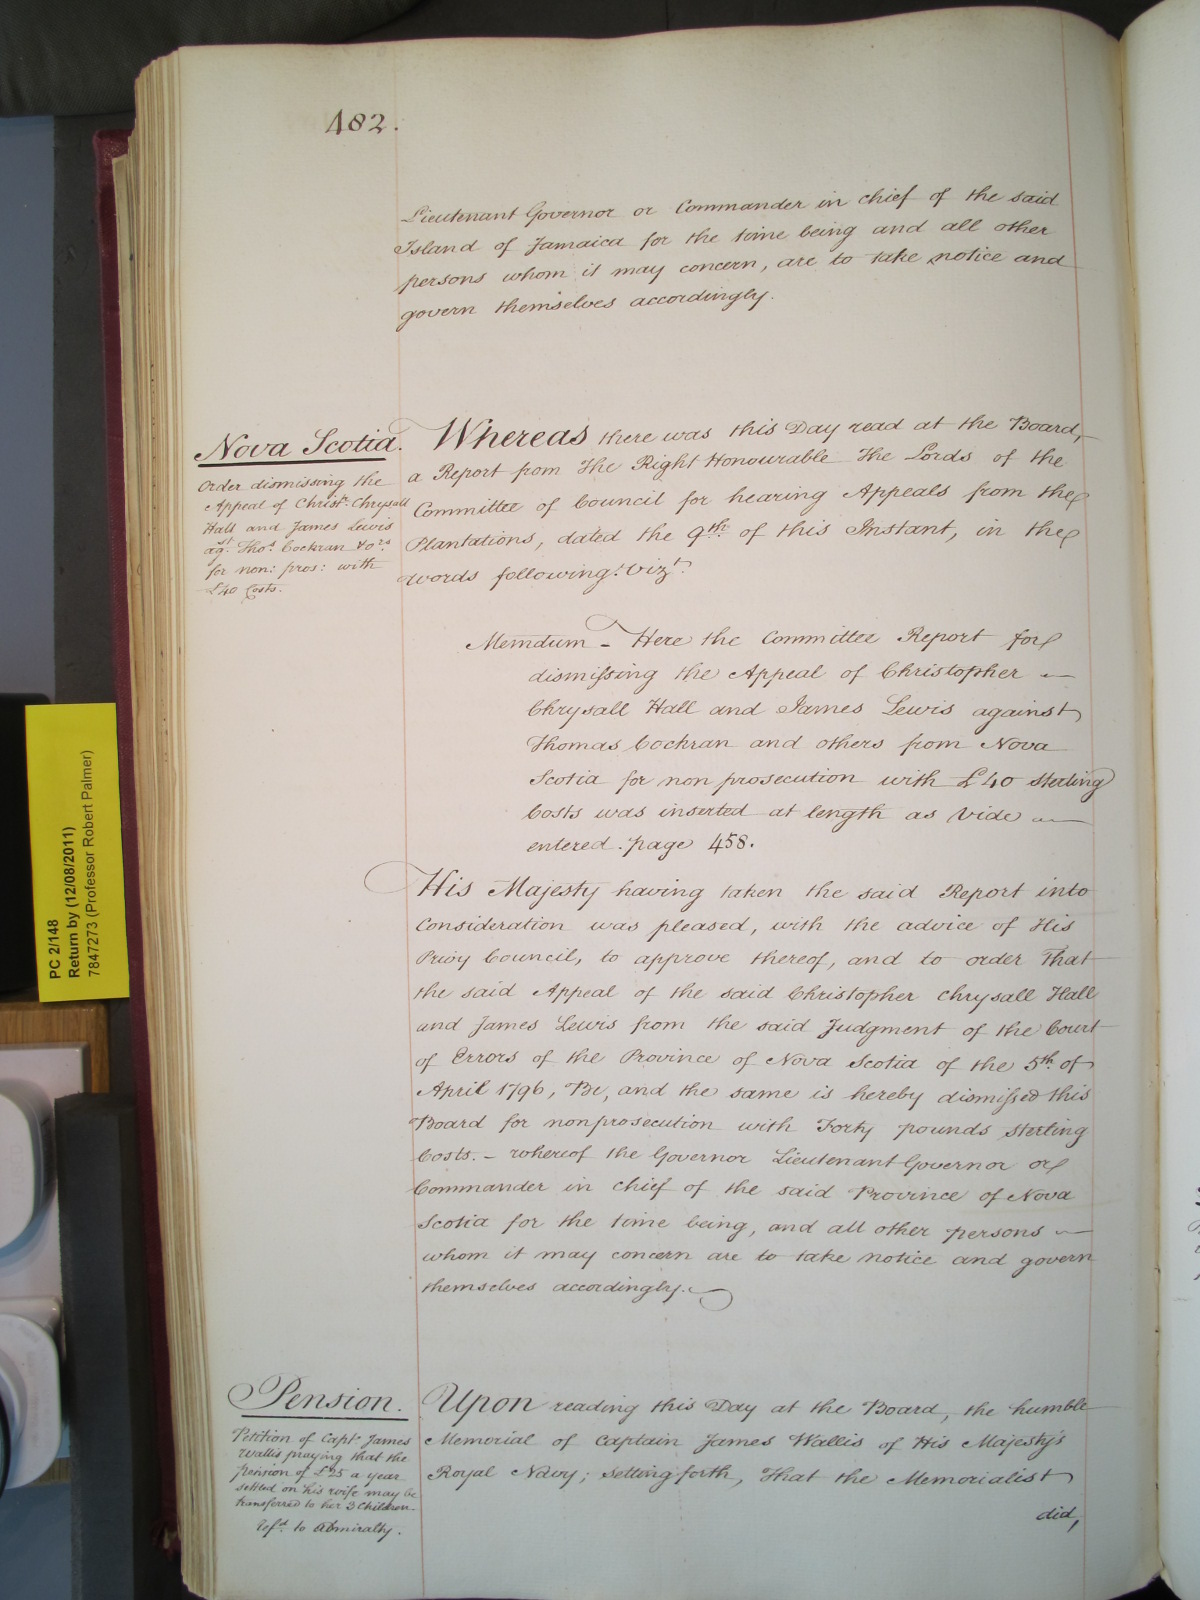 482.
Lieutenant Governor or Commander in chief of the said
Island of Jamaica for the time being and all other
persons whom it may concern, are to take notice and
govern themselves accordingly.
Nova Scotia.
Order dismissing the
Appeal of Christr. Chrysall
Hall and James Lewis
agst. Thos. Cockran & ors.
for non: pros: with
£40 Costs.
Whereas there was this Day read at the Board,
a Report from the Right Honourable the Lords of the
Committee of Council for hearing Appeals from the
Plantations, dated the 9th. of this Instant, in the
words following. Vizt.
Memdum - Here the Committee Report for
dismissing the Appeal of Christopher
Chrysall Hall and James Lewis against
Thomas Cockran and others from Nova
Scotia for non prosecution with £40 sterling
Costs was inserted at length as Vide
entered. page 458.
His Majesty having taken the said Report into
Consideration was pleased, with the advice of His
Privy Council, to approve thereof, and to order That
the said Appeal of the said Christopher Chrysall Hall
and James Lewis from the said Judgment of the Court
of Errors of the Province of Nova Scotia of the 5th. of
April 1796, Be, and the same is hereby dismissed this
Board for nonprosecution with Forty pounds sterling
Costs. - whereof the Governor Lieutenant Governor or
Commander in chief of the said Province of Nova
Scotia for the time being, and all other persons
whom it may concern are to take notice and govern
themselves accordingly.
Pension.
Petition of Captn. James
Wallis praying that the
pension of £25 a year
settled on his wife may be
transferred to her 3 Children
refd. to Admiralty.
Upon reading this Day at the Board, the humble
Memorial of Captain James Wallis of His Majesty's
Royal Navy; setting forth, That the Memorialist
did,
PC 2/148
Return by (12/08/2011)
7847273 (Professor Robert Palmer)